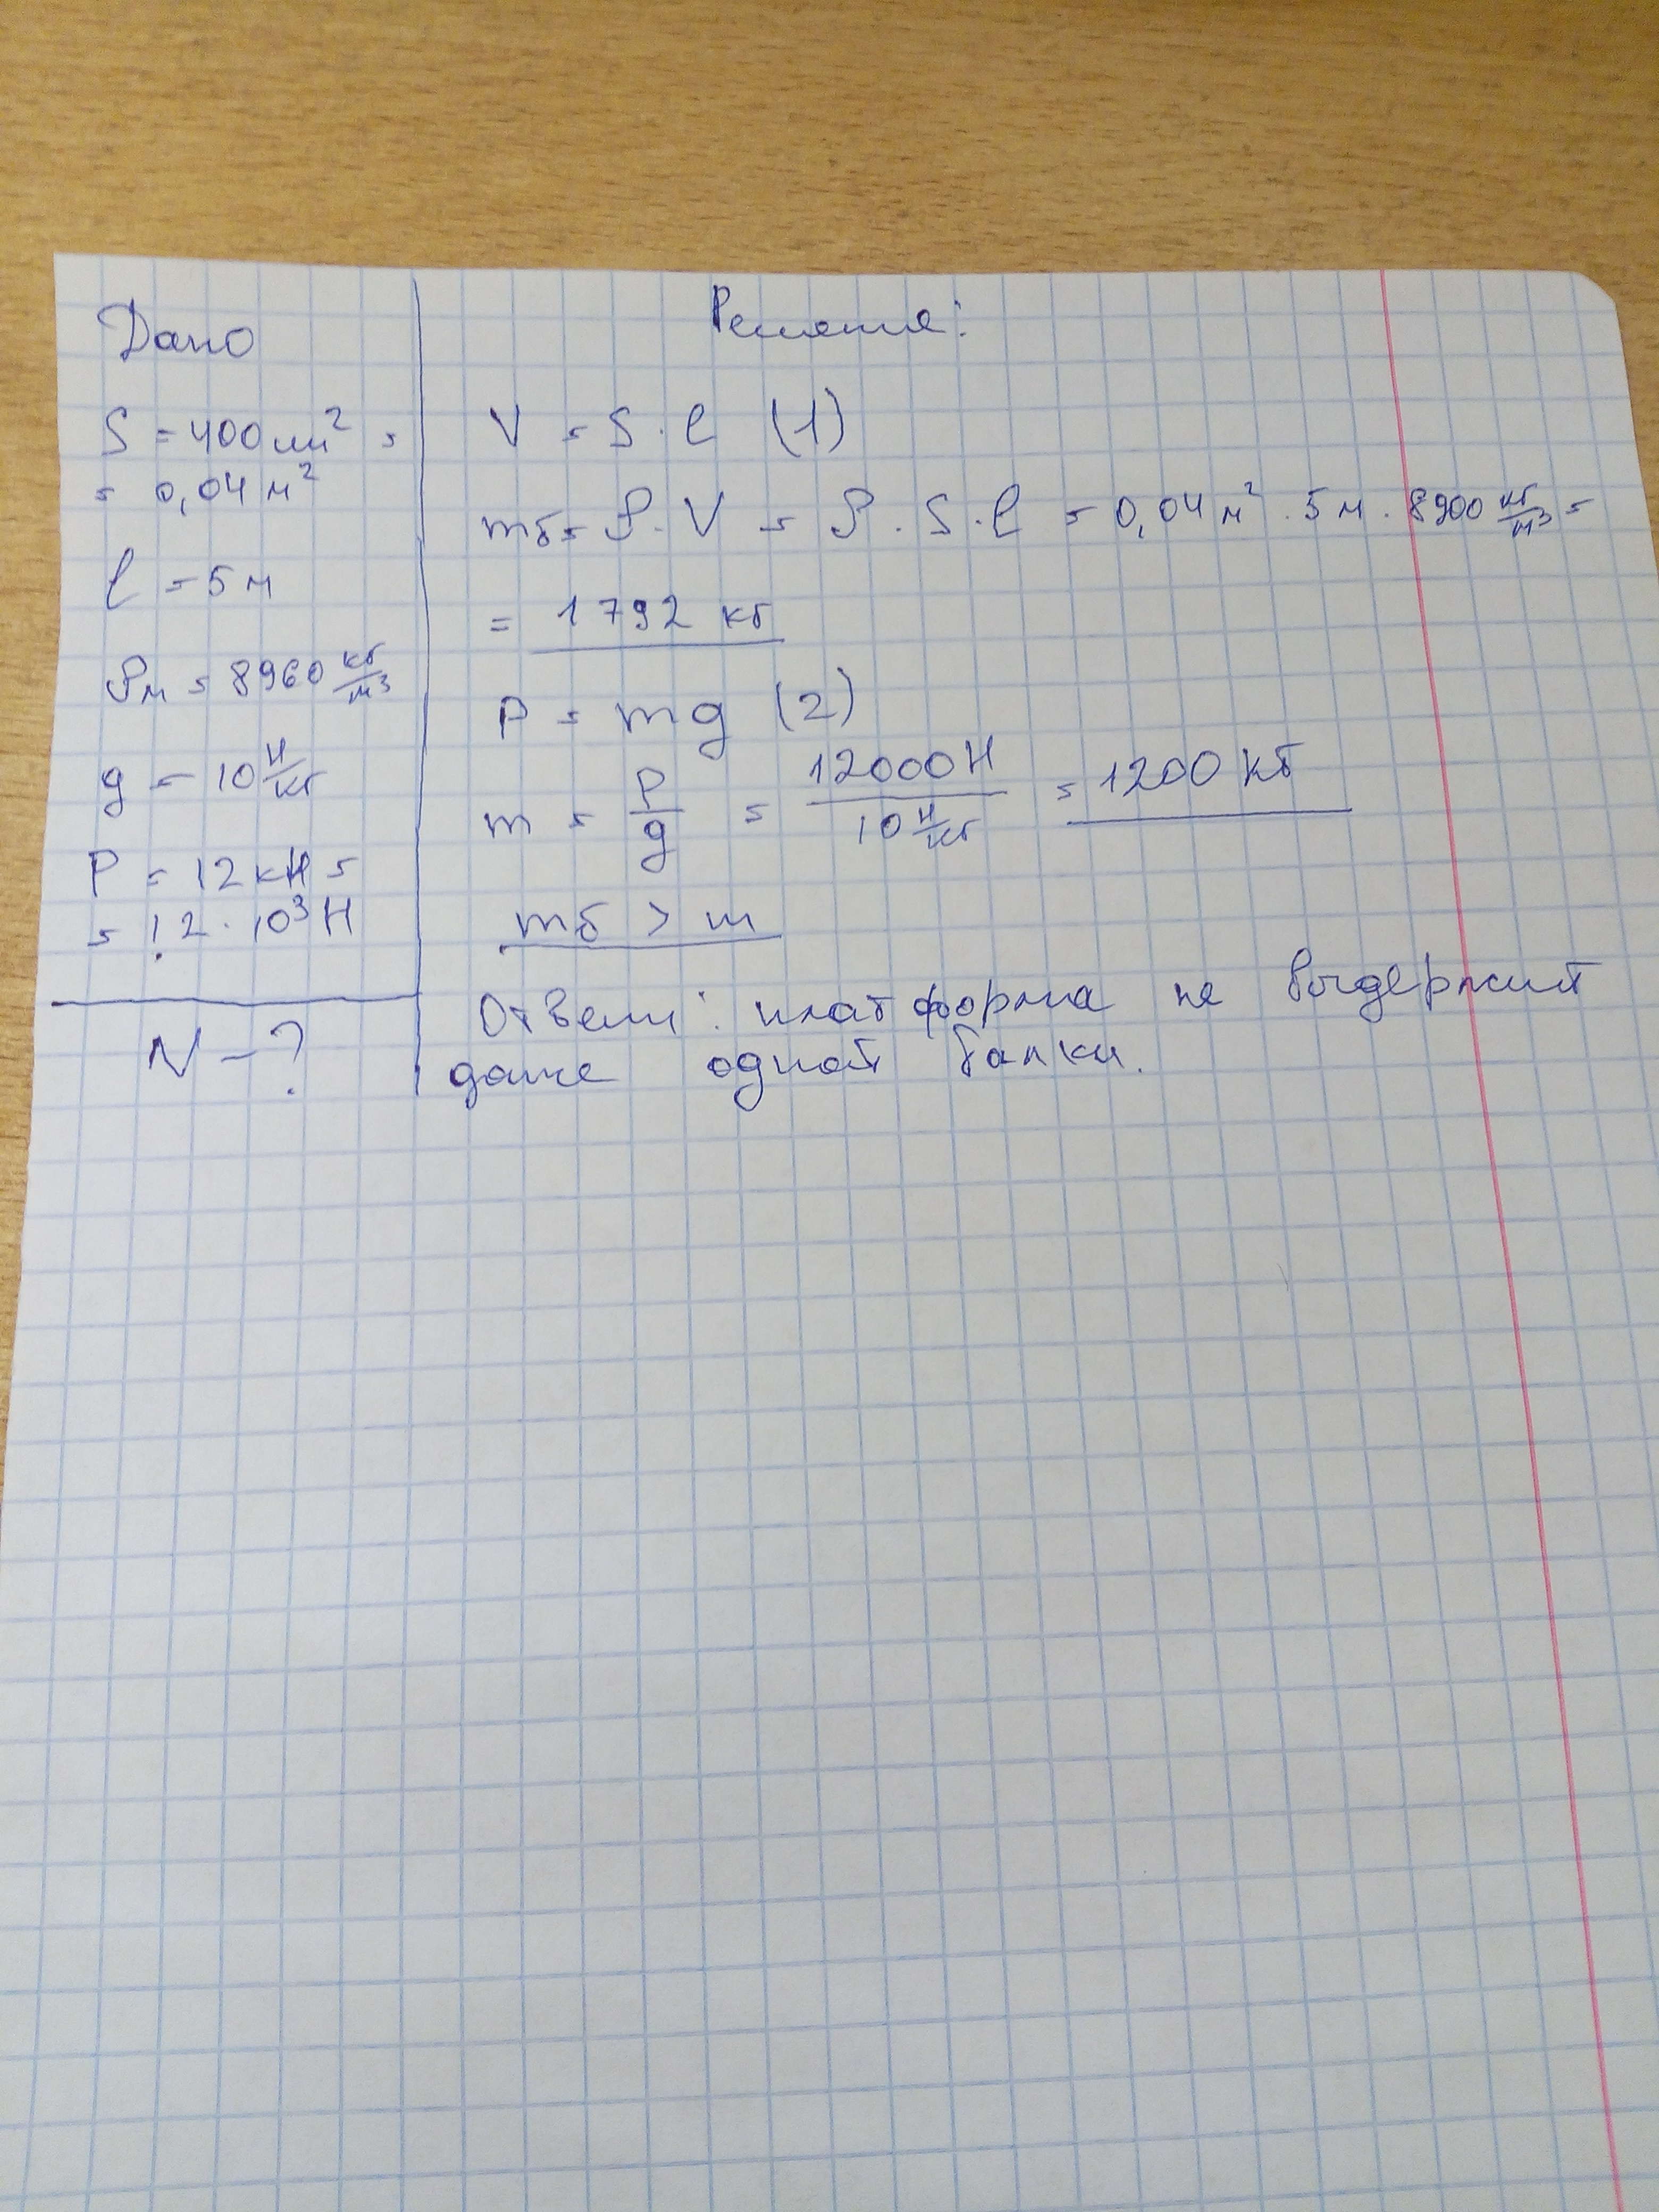 Дано
S = 400 см² =
= 0,04 м²
l = 5 м
ρм = 8960 кг/м³
g = 10 Н/кг
P = 12 кН =
= 12 · 10³ Н
N – ?
Решение:
V = S · l (1)
mб = ρ · V = ρ · S · l = 0,04 м² · 5 м · 8900 кг/м³ =
= 1792 кг
P = mg (2)
m = P/g = 12000 Н / 10 Н/кг = 1200 кг
mб > m
Ответ: платформа не выдержит
даже одной балки.